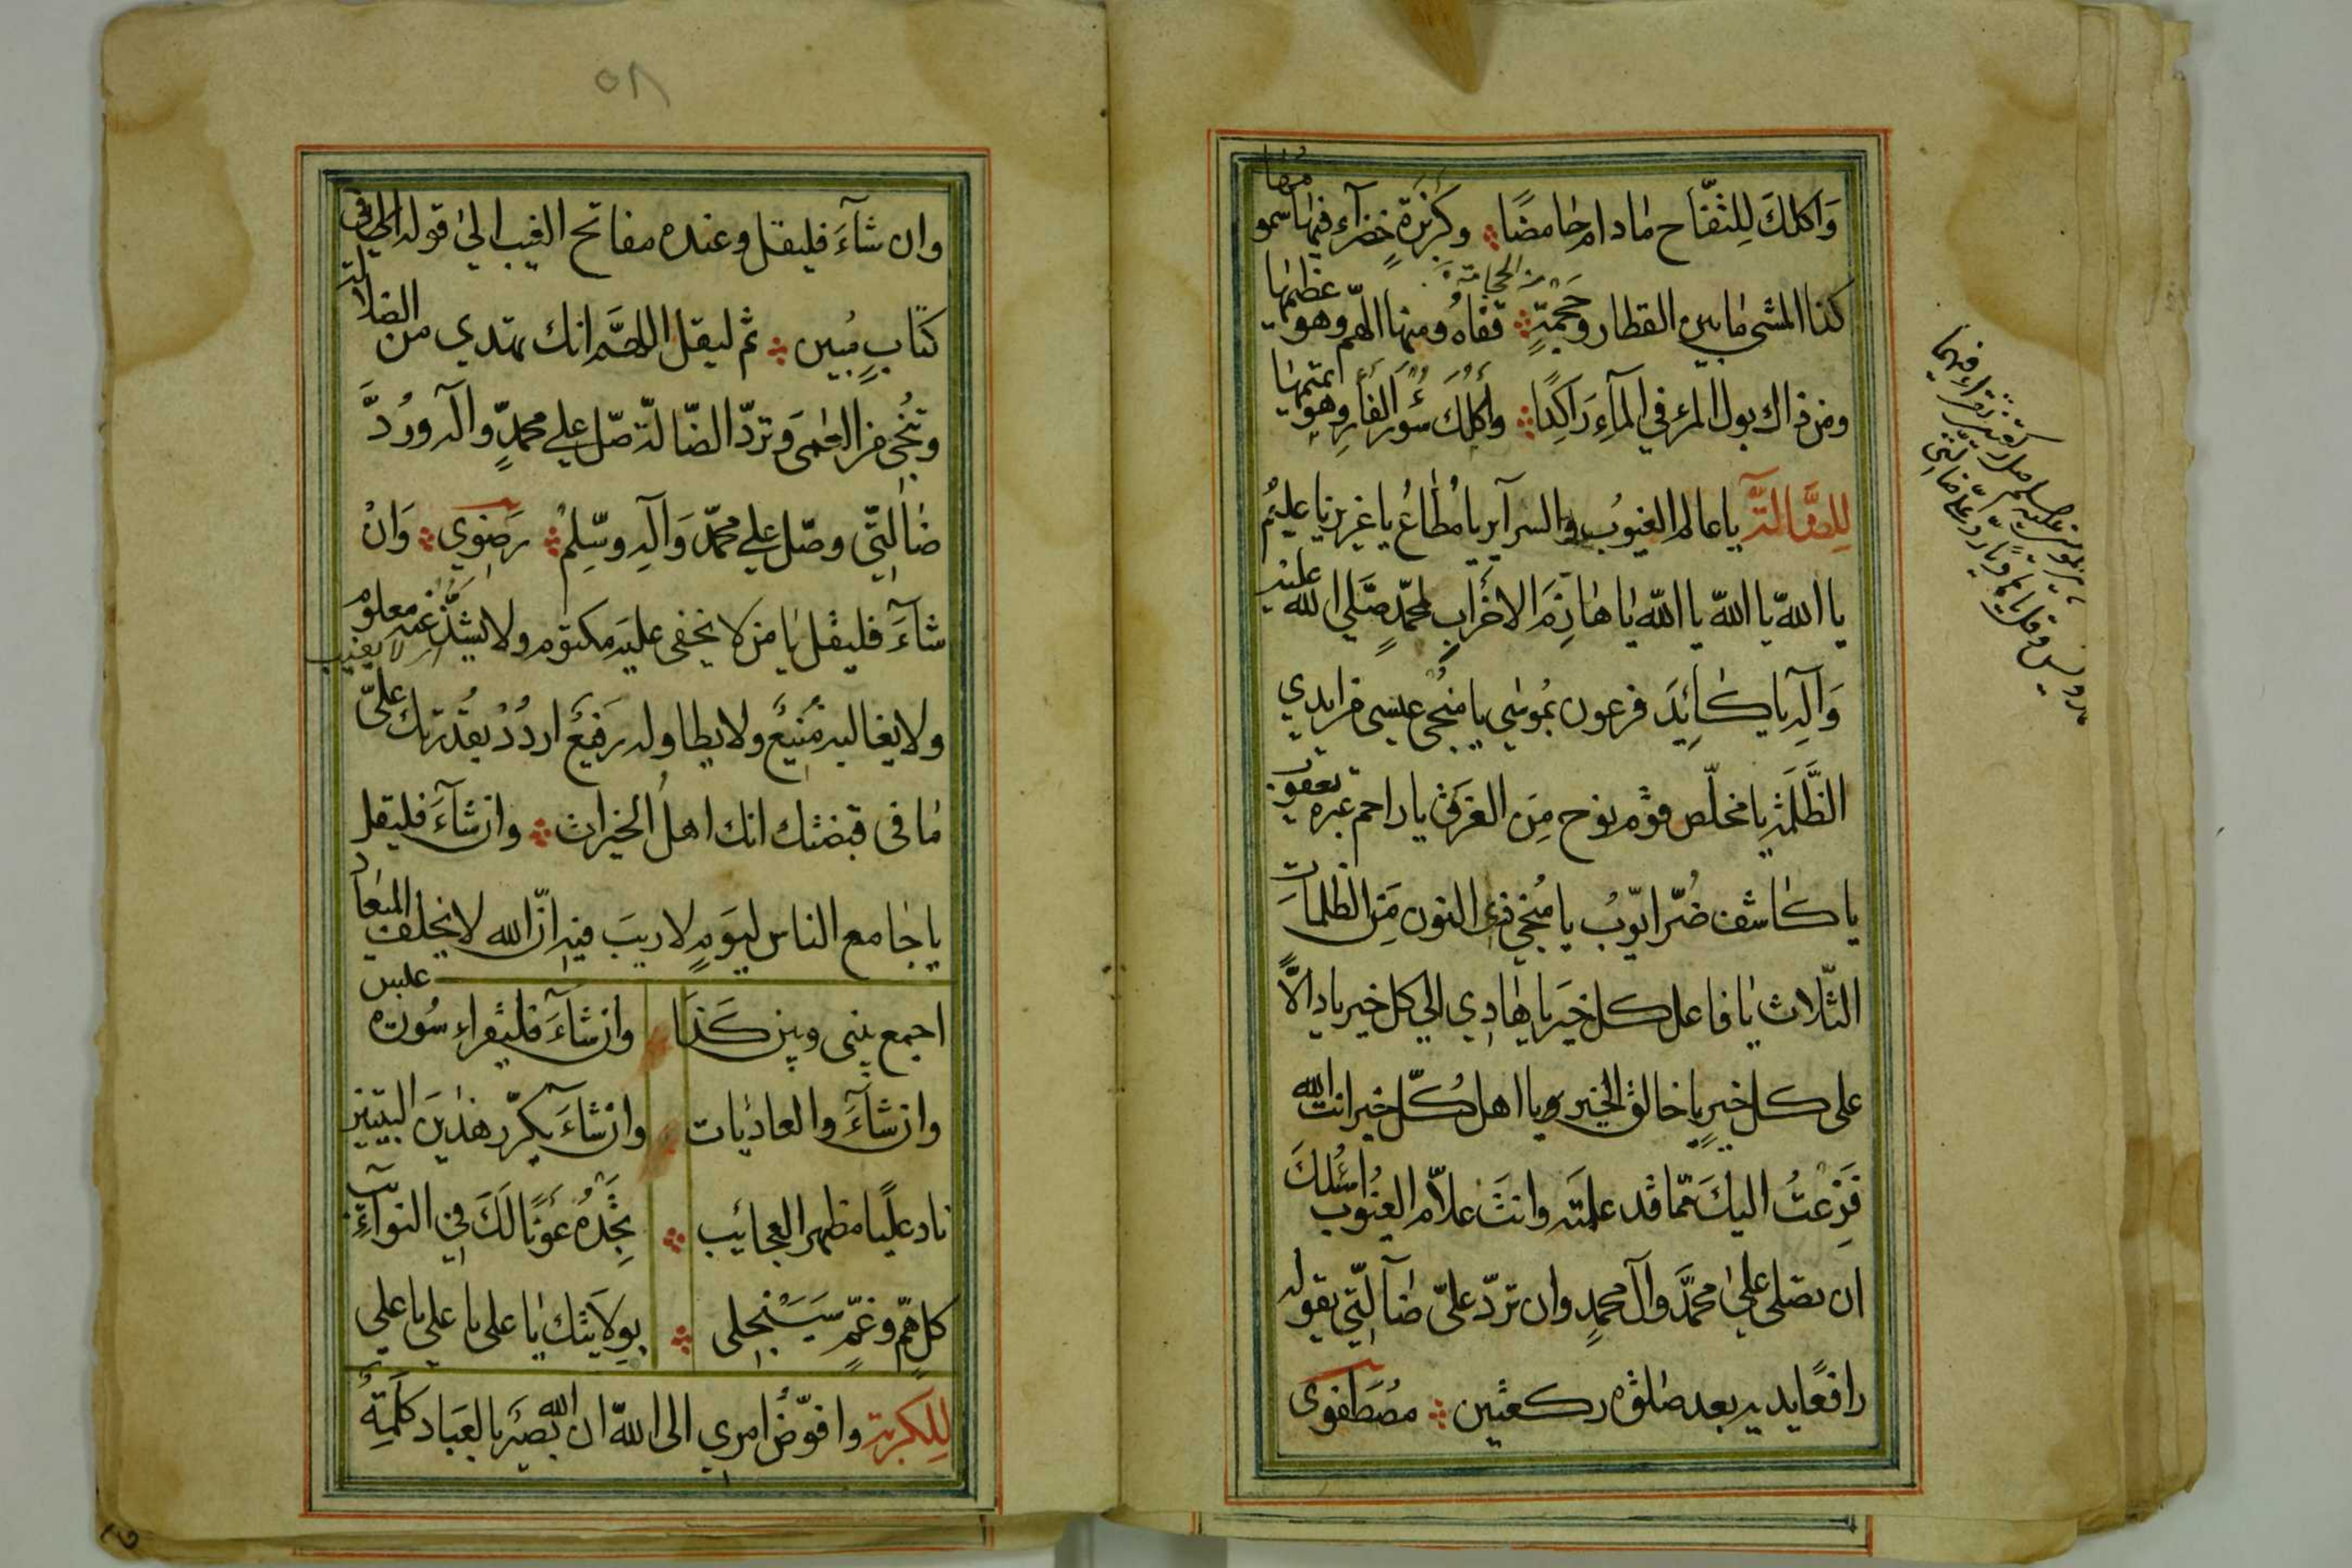 وَاكلكَ لِلتفّاح مادام حامضًا وكزبرة خضرآء فيها سمو
كذا المشي مابين القطار وحجمةٍ قفاهُ ومنها الهمّ وهو عظيمها
ومن ذاك بول المرء في المآءِ رَاكِدًا وأكلكَ سُؤر الفأرِ وهو
لِلضّالّة يا عالم الغيوبُ والسرآير يا مُطاعُ يا عزيز يا عليمُ
يا اللّه يا اللّه يا اللّه يا هازِمَ الاحزابِ لمحمّدٍ صَلي اللّه عليه
وَآلِه يا كائِدَ فرعون بمُوسٰي يا منجي عيسى من ايدي
الظَّلَمة يا مخلّص قوم نوح مِنَ الغرق يا راحم عبره يعقوب
يا كاشف ضُرّ ايّوبُ يا مُنجي ذي النون مِنَ الظلمات
الثّلاث يا فاعل كل خيَر يا هادِي الي كل خير يا دالًّا
على كل خيرٍ يا خالق الخير ويا اهل كُلّ خير انت اللّه
فَزِعْتُ اليكَ ممّا قد علمته وانتَ علّام الغيُوب اسئلكَ
ان تصلى عليٰ محمَّد وآل محمدٍ وان تردّ عليّ ضآلّتي يقوله
رافعًا يديه بعد صلوٰة ركعتين مصُطَفوى
٥٨
وان شآءَ فليقل وعنده مفاتح الغيب اليٰ قوله الي في
كتابٍ مُبين ثم ليقل اللهمَّ انك تهدي من الضلالة
وتُنجي من العمىَ وتردّ الضّالة صّل علي محمدٍ وآله ورُدَّ
ضالّتي وصّل علي محمّد وَآلِه وسّلِمْ رضوِي وَانْ
شآءَ فليقل يا من لا يخفى عليَه مكتوم ولا يشذّ عنه معلوم
لا يغيب
ولا يغالبه مُنيعٌ ولا يطاوله رَفيعٌ اردُدْ بقُدرتك عليّ
ما فى قبضتك انك اهلُ الخيرات وان شآءَ فليقل
يا جامع الناس ليَومٍ لا ريبَ فيه انّ الله لا يخلف الميعاد
اجمع بينى وبين كَذا وان شآءَ فليقراء سُورة عبس
وان شآءَ والعاديات وان شآءَ يكرّر هذيَن البيتين
ناد عليًا مظهر العجائيب تجَدْهُ عَونًا لَكَ فِي النوآئب
كل همّ وغمّ سيَنجلى بِولايتك يا على يا علي يا علي
لِلكربة وافوّضُ امري الى اللّه ان اللّه بصيرٌ بالعبَاد كلمَةُ